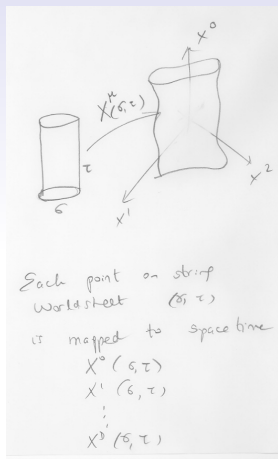 X⁰
X^μ(σ,τ)
τ
σ
X¹
X²
Each point on string
Worldsheet (σ, τ)
is mapped to spacetime
X⁰ (σ, τ)
X¹ (σ, τ)
⋮
X^D (σ, τ)